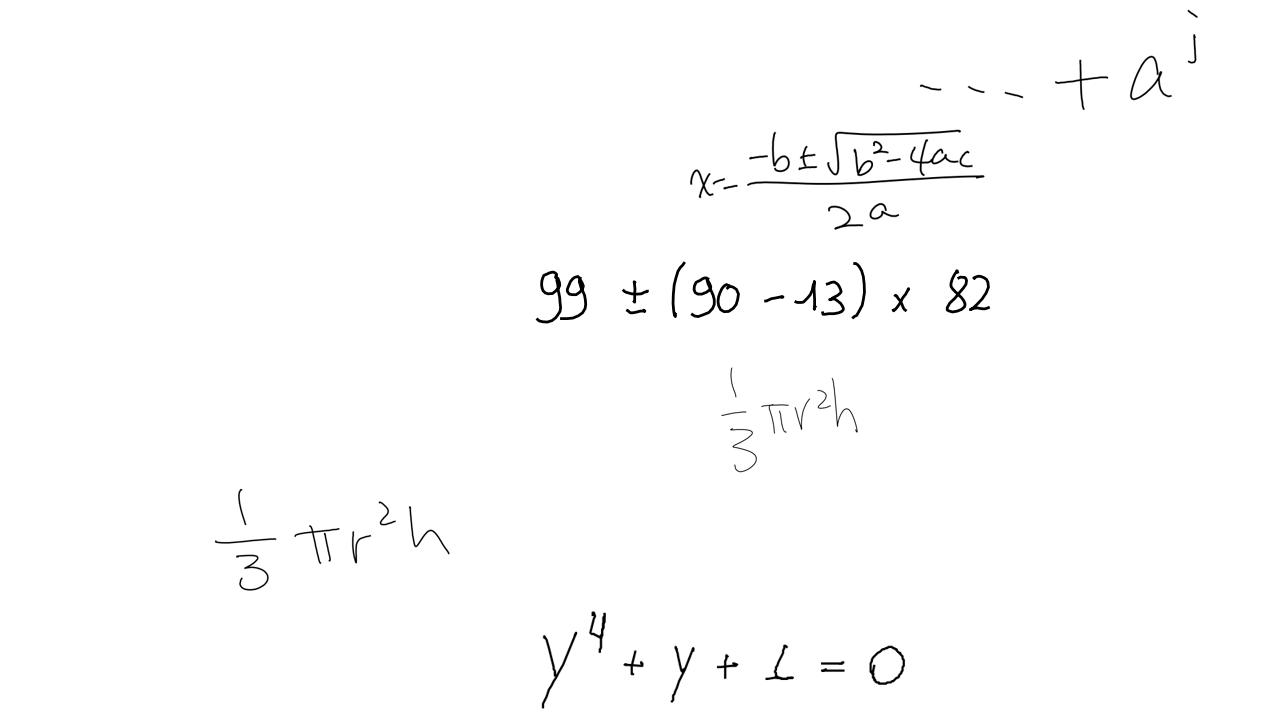 --- + a^j
x = \frac{-b ± \sqrt{b^2 - 4ac}}{2a}
99 ± (90 - 13) × 82
\frac{1}{3} πr^2h
\frac{1}{3} πr^2h
y^4 + y + 1 = 0